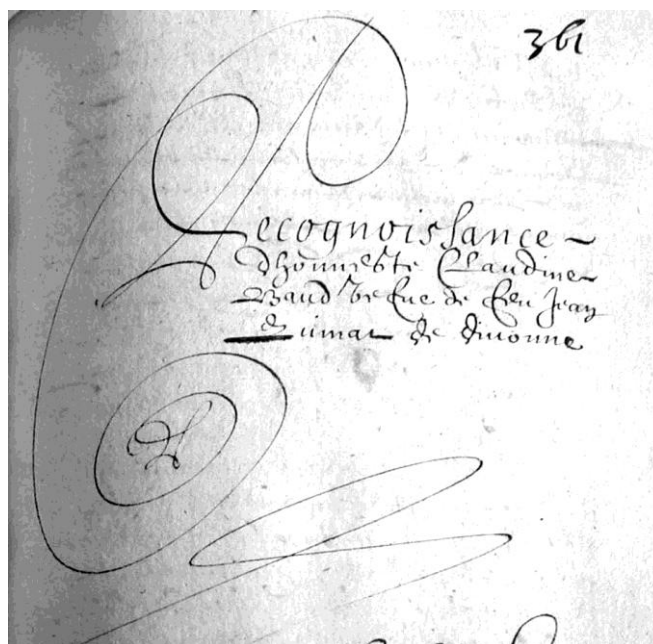 361
Recognoissance
dhonneste Claudine
vefve de feu Jean
de divonne